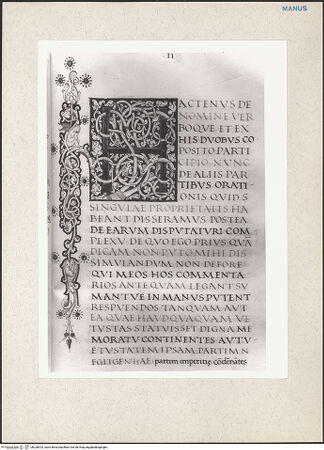 MANUS
II
HACTENUS DE
NOMINE VER
BOQUE ET EX
HIS DUOBUS CO
POSITO PARTI
CIPIO NUNC
DE ALIIS PAR
TIBUS ORATI
ONIS QUID S
SINGULAE PROPRIETATIS HA
BEANT DISSERAMUS POSTEA
DE EARUM DISPUTATURI COM
PLEXU DE QUO EGO PRIUS QUĀ
DICAM NON PUTO MIHI DIS
SIMULANDUM NON DEFORE
QUI MEOS HOS COMMENTA
RIOS ANTEQUAM LEGANT SU
MANTUE IN MANUS PUTENT
RESPUENDOS TANQUAM AUT
EA QUAE HAUDQUAQUAM VE
TUSTAS STATUISSET DIGNA ME
MORATU CONTINENTES AUT U
ETUSTATEM IPSAM PARTIM N
EGLIGENTIAE partim imperitię cōdēnātes